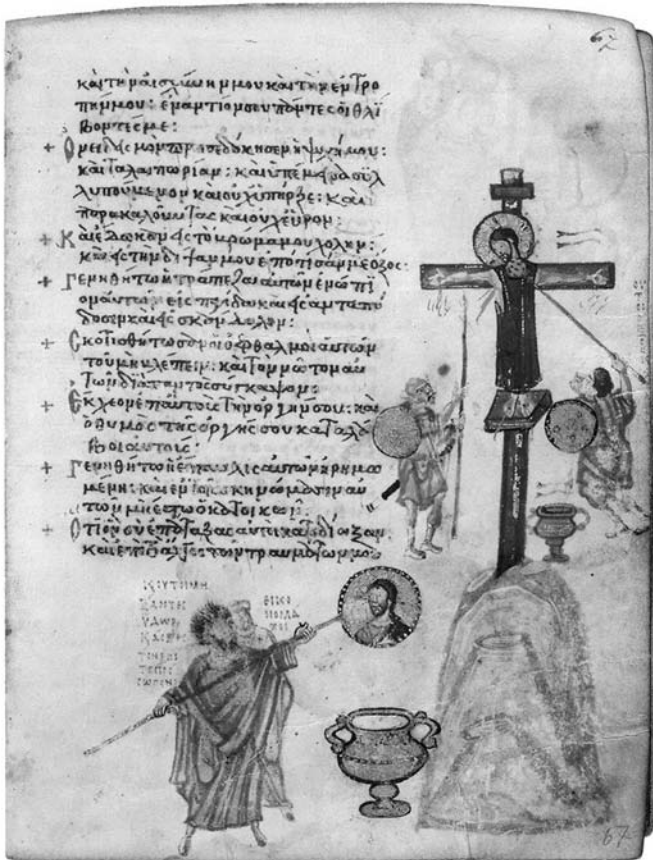 67
καὶ τὴν αἰσχύνην μου καὶ τὴν ἐντρο
πήν μου: ἐναντίον σου πάντες οἱ θλί
βοντές με:
+ Ὀνειδισμὸν προσεδόκησεν ἡ ψυχή μου:
καὶ ταλαιπωρίαν: καὶ ὑπέμεινα συλ
λυπούμενον καὶ οὐχ ὑπῆρξε: καὶ
παρακαλοῦντας καὶ οὐχ εὗρον:
+ Καὶ ἔδωκαν εἰς τὸ βρῶμά μου χολήν:
καὶ εἰς τὴν δίψαν μου ἐπότισάν με ὄξος:
+ Γενηθήτω ἡ τράπεζα αὐτῶν ἐνώπι
ον αὐτῶν εἰς παγίδα καὶ εἰς ἀνταπό
δοσιν καὶ εἰς σκάνδαλον:
+ Σκοτισθήτωσαν οἱ ὀφθαλμοὶ αὐτῶν
τοῦ μὴ βλέπειν: καὶ τὸν νῶτον αὐ
τῶν διὰ παντὸς σύγκαμψον:
+ Ἔκχεον ἐπ' αὐτοὺς τὴν ὀργήν σου: καὶ
ὁ θυμὸς τῆς ὀργῆς σου καταλά
βοι αὐτούς:
+ Γενηθήτω ἡ ἔπαυλις αὐτῶν ἠρημω
μένη: καὶ ἐν τοῖς σκηνώμασιν αὐ
τῶν μὴ ἔστω ὁ κατοικῶν:
+ Ὅτι ὃν σὺ ἐπάταξας αὐτοὶ κατεδίωξαν
καὶ ἐπὶ τὸ ἄλγος τῶν τραυμάτων μου
ΥΔΩΡ
67